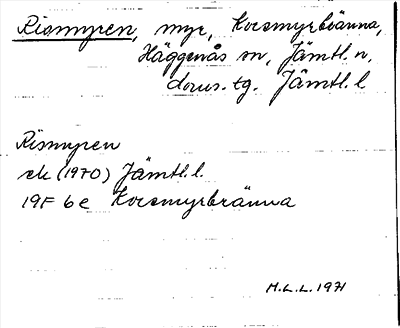 Rismyren, myr, Korsmyrbränna,
Häggenås sn, Jämtl. n.
doms. tg. Jämtl. l
Rismyren
ek (1970) Jämtl. l.
19F 6e Korsmyrbränna
M.L.L. 1971